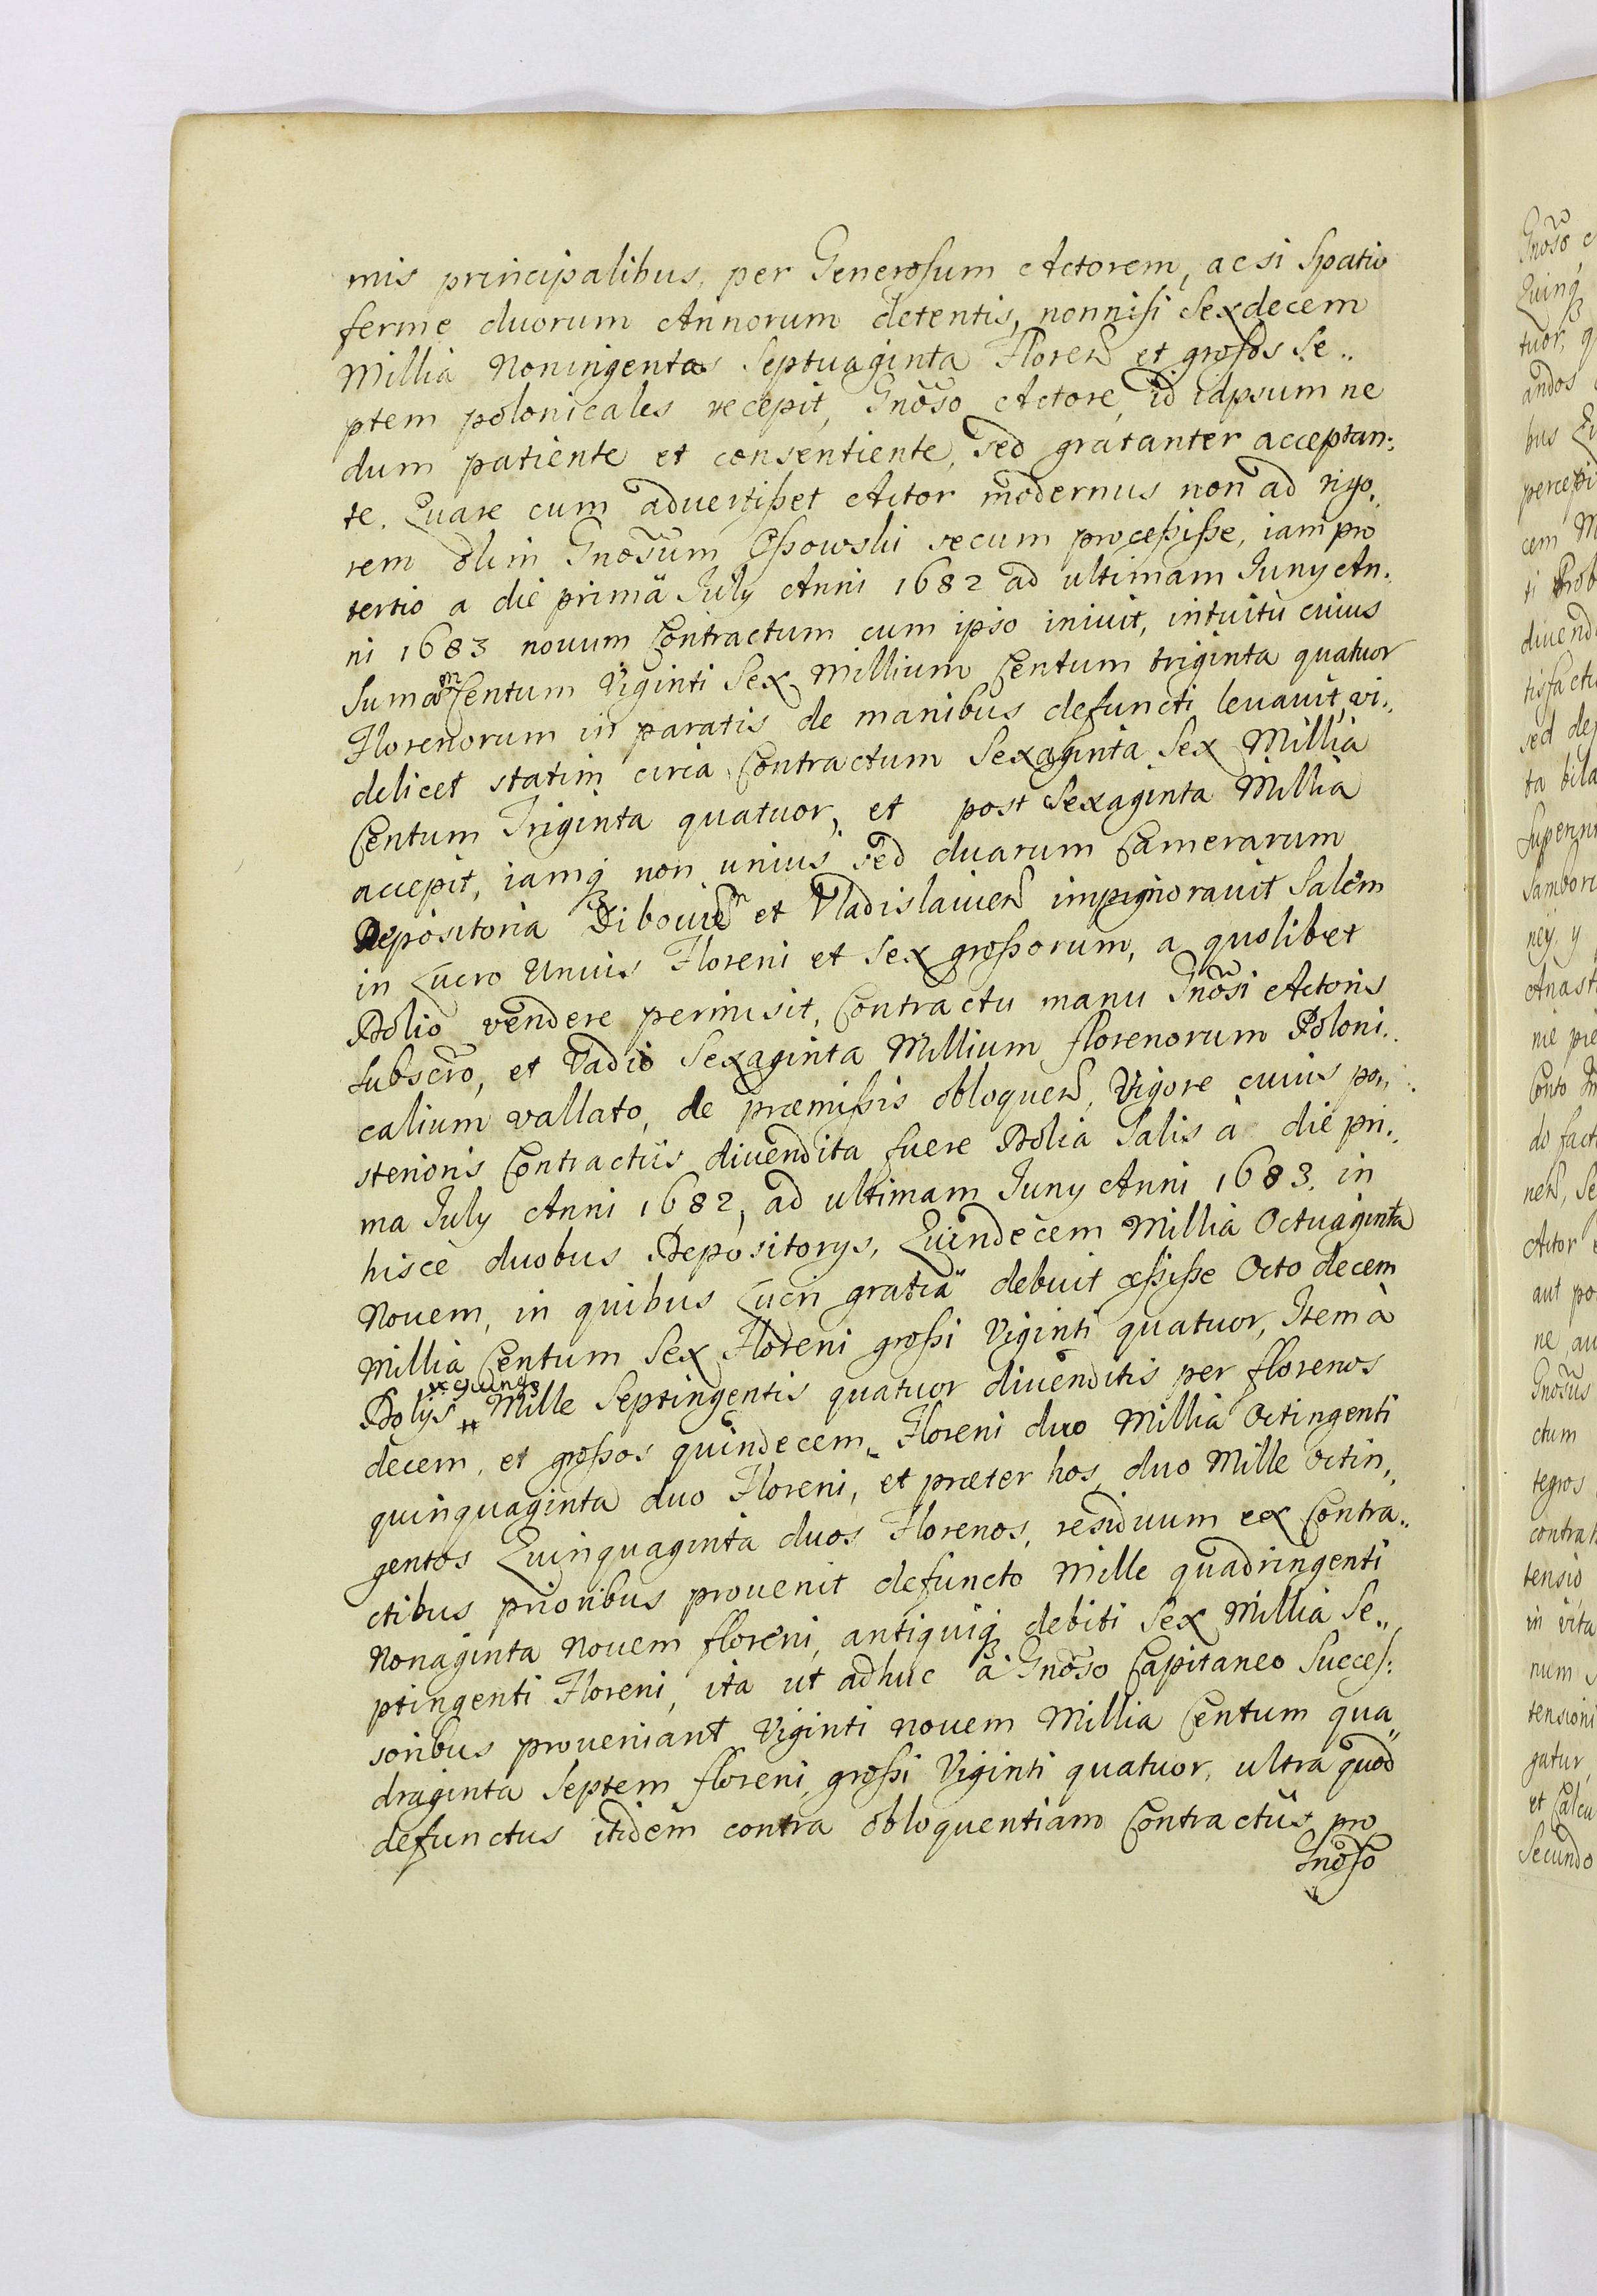 mis principalibus, per Generosum Actorem, ac si Spatio
ferme duorum Annorum detentis, nonnisi Sexdecem
Millia Noningentos Septuaginta Floren̄ et grossos Se..
ptem polonicales recepit, Gnõso Actore, id idpsum ne
dum patiente et consentiente, sed gratanter acceptan:
te. Quare cum advertisset Actor modernus non ad rigo.
rem olim Gnosũm secum processisse, iam pro
tertio a die primä July Anni 1682 ad ultimam Juny An:
ni 1683 novum Contractum cum ipso inivit, intuitu cuius
Sumam Centum Viginti Sex Millium Centum triginta quatuor
Florenorum in paratis de manibus defuncti levavit, vi..
delicet statim circa Contractum Sexaginta Sex Millia
Centum Triginta quatuor, et post Sexaginta Millia
accepit, iamq non unius sed duarum Camerarum
Depositoria Dibovien̄ et Vladislavien̄ impignoravit Salem
in Lucro Unius Floreni et Sex grossorum, a quolibet
Dolio vendere permisit, Contractu manu Gnõsi Actoris
Subscr̃o, et Vadio Sexaginta Millium florenorum Poloni..
calium vallato, de præmissis obloquen̄, Vigore cuius po..
sterioris Contractûs divendita fuere Dolia Salis à die pri..
ma July Anni 1682, ad ultimam Juny Anni 1683. in
hisce duobus Depositorys, Quindecem Millia Octuaginta
Novem, in quibus Lucri gratiä debuit cessisse Octo decem
Millia Centum Sex Floreni grossi Viginti quatuor, Item à
Dolijs # Mille Septingentis quatuor divenditis per florenos
decem, et grossos quindecem, Floreni duo Millia Octingenti
quinquaginta duo Floreni, et præter hos, duo Mille Octin..
gentos Quinquaginta duos Florenos, residuum ex Contra..
ctibus prioribus provenit defuncto Mille quadringenti
Nonaginta Novem floreni, antiquiq debiti Sex Millia Se..
ptingenti Floreni, ita ut adhuc à Gnõso Capitaneo Succes:
soribus proveniant Viginti novem Millia Centum qua
draginta Septem floreni, grossi Viginti quatuor, ultra quod
defunctus itidem contra obloquentiam Contractûs pro
Gnõso